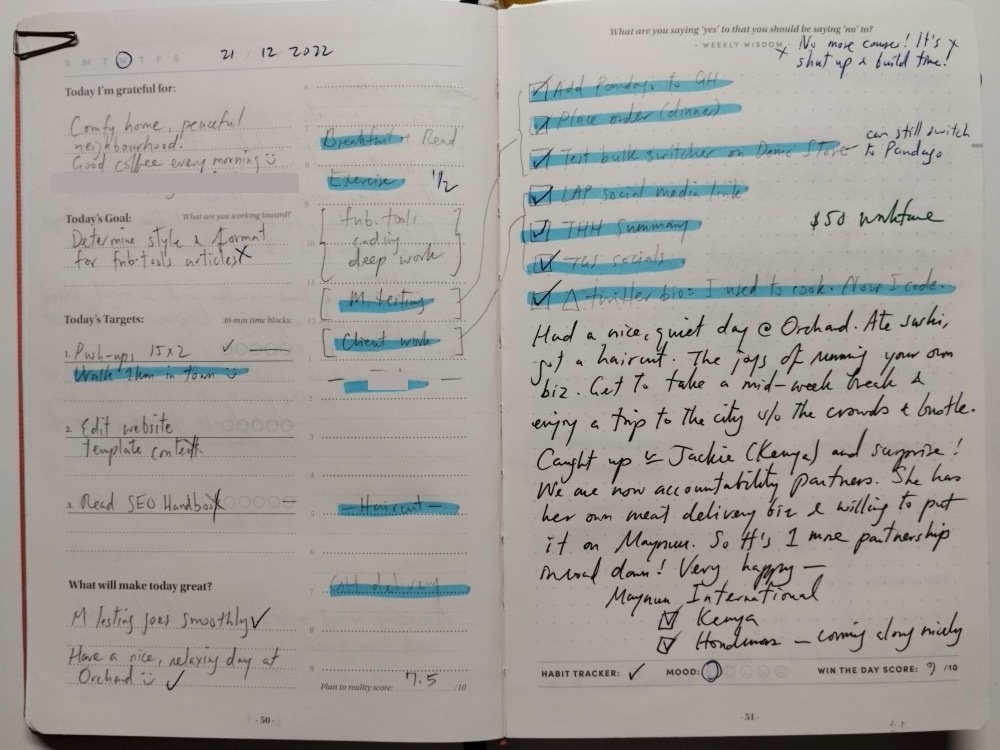 S M T W T F S
21 / 12 2022
Today I'm grateful for:
Comfy home, peaceful
neighbourhood.
Good coffee every morning
Today's Goal:
What are you working toward?
Determine style & format
for fnb.tools articles X
Today's Targets:
30-min time blocks:
1. Push-ups 15x2 ✓
Walk 1km in town
2. Edit website
template content.
3. Read SEO Handbook
What will make today great?
M testing goes smoothly ✓
Have a nice, relaxing day at
Orchard ✓
6
7
Breakfast + Read
8
Exercise 1/2
9
fnb.tools
10
coding
deep work
11
M. testing
12
1
Client work
2
3
4
5
Haircut
6
7
GH delivery
8
9
Plan to reality score: 7.5 /10
- 50 -
What are you saying 'yes' to that you should be saying 'no' to?
- WEEKLY WISDOM -
x No more courses! It's x
shut up & build time!
Add Pandago to GH
Place order (dinner)
Test bulk switcher on Demo Store
can still switch
to Pandago
LAP social media link
THH Summary
TGS socials
△ twitter bio: I used to cook. Now I code.
$50
Had a nice, quiet day @ Orchard. Ate sushi,
got a haircut. The joys of running your own
biz. Get to take a mid-week break &
enjoy a trip to the city w/o the crowds & bustle.
Caught up w Jackie (Kenya) and surprise!
We are now accountability partners. She has
her own meat delivery biz & willing to put
it on Maynuu. So it's 1 more partnership
inroad down! Very happy —
Maynuu International
Kenya
Honduras — coming along nicely
HABIT TRACKER: ✓
MOOD:
WIN THE DAY SCORE: 9 /10
- 51 -